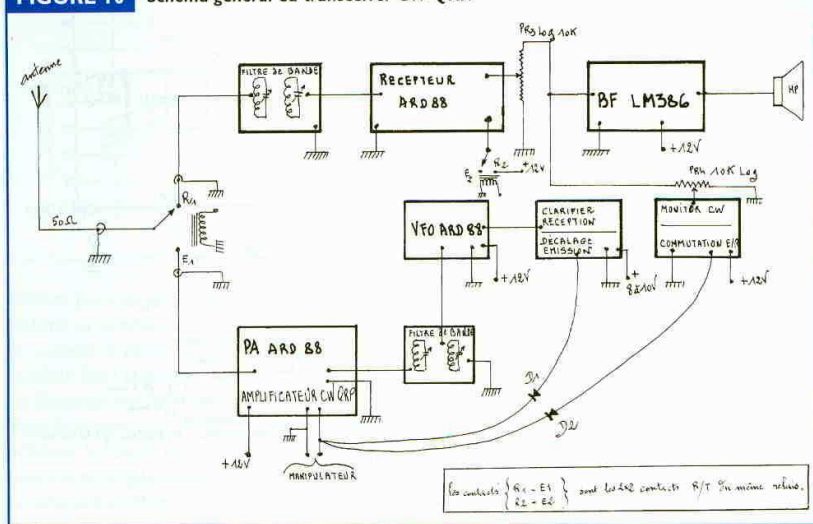 FIGURE 10
Schéma général du transceiver CW QRP.
antenne
50Ω
R1
E1
FILTRE DE BANDE
RECEPTEUR
ARD 88
PR3 Log 10K
BF LM386
HP
+12V
R2
E2
+12V
PR4 10K Log
VFO ARD 88
+12V
CLARIFIER
RECEPTION
DÉCALAGE
EMISSION
+
8à10V
MONITOR CW
COMMUTATION E/R
+12V
PA ARD 88
AMPLIFICATEUR CW QRP
+12V
MANIPULATEUR
FILTRE de BANDE
D1
D2
Les contacts { R1 - E1
R2 - E2 } sont les 2x2 contacts R/T du même relais.